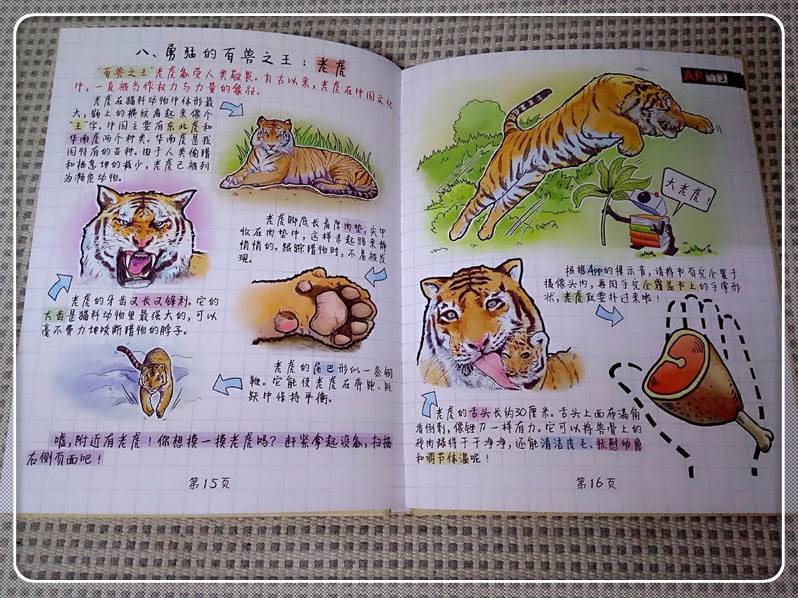 八、勇猛的百兽之王：老虎
"百兽之王"老虎备受人类敬畏。自古以来，老虎在中国文化
中，一直被当作权力与力量的象征。
老虎在猫科动物中体形最
大，额上的横纹看起来像个
"王"字。中国主要有东北虎和
华南虎两个种类。华南虎是我
国特有的亚种。由于人类偷猎
和栖息地的减少，老虎已被列
为濒危动物。
老虎脚底长着厚肉垫，尖甲
收在肉垫中，这样走起路来静
悄悄的。跟踪猎物时，不易被发
现。
老虎的牙齿又长又锋利。它的
犬齿是猫科动物里最强大的，可以
毫不费力地咬断猎物的脖子。
老虎的尾巴形似一条钢
鞭。它能使老虎在奔跑、跳
跃中保持平衡。
嘘，附近有老虎！你想摸一摸老虎吗？赶紧拿起设备，扫描
右侧页面吧！
第15页
AR
大老虎！
根据App的提示音，请将书页完全置于
摄像头内，再用手完全覆盖书上的手序形
状，老虎就要扑过来啦！
老虎的舌头长约30厘米。舌头上面布满角
质倒刺，像锉刀一样有力。它可以将兽骨上的
残肉舔得干干净净，还能清洁皮毛、抚慰幼兽
和调节体温呢！
第16页